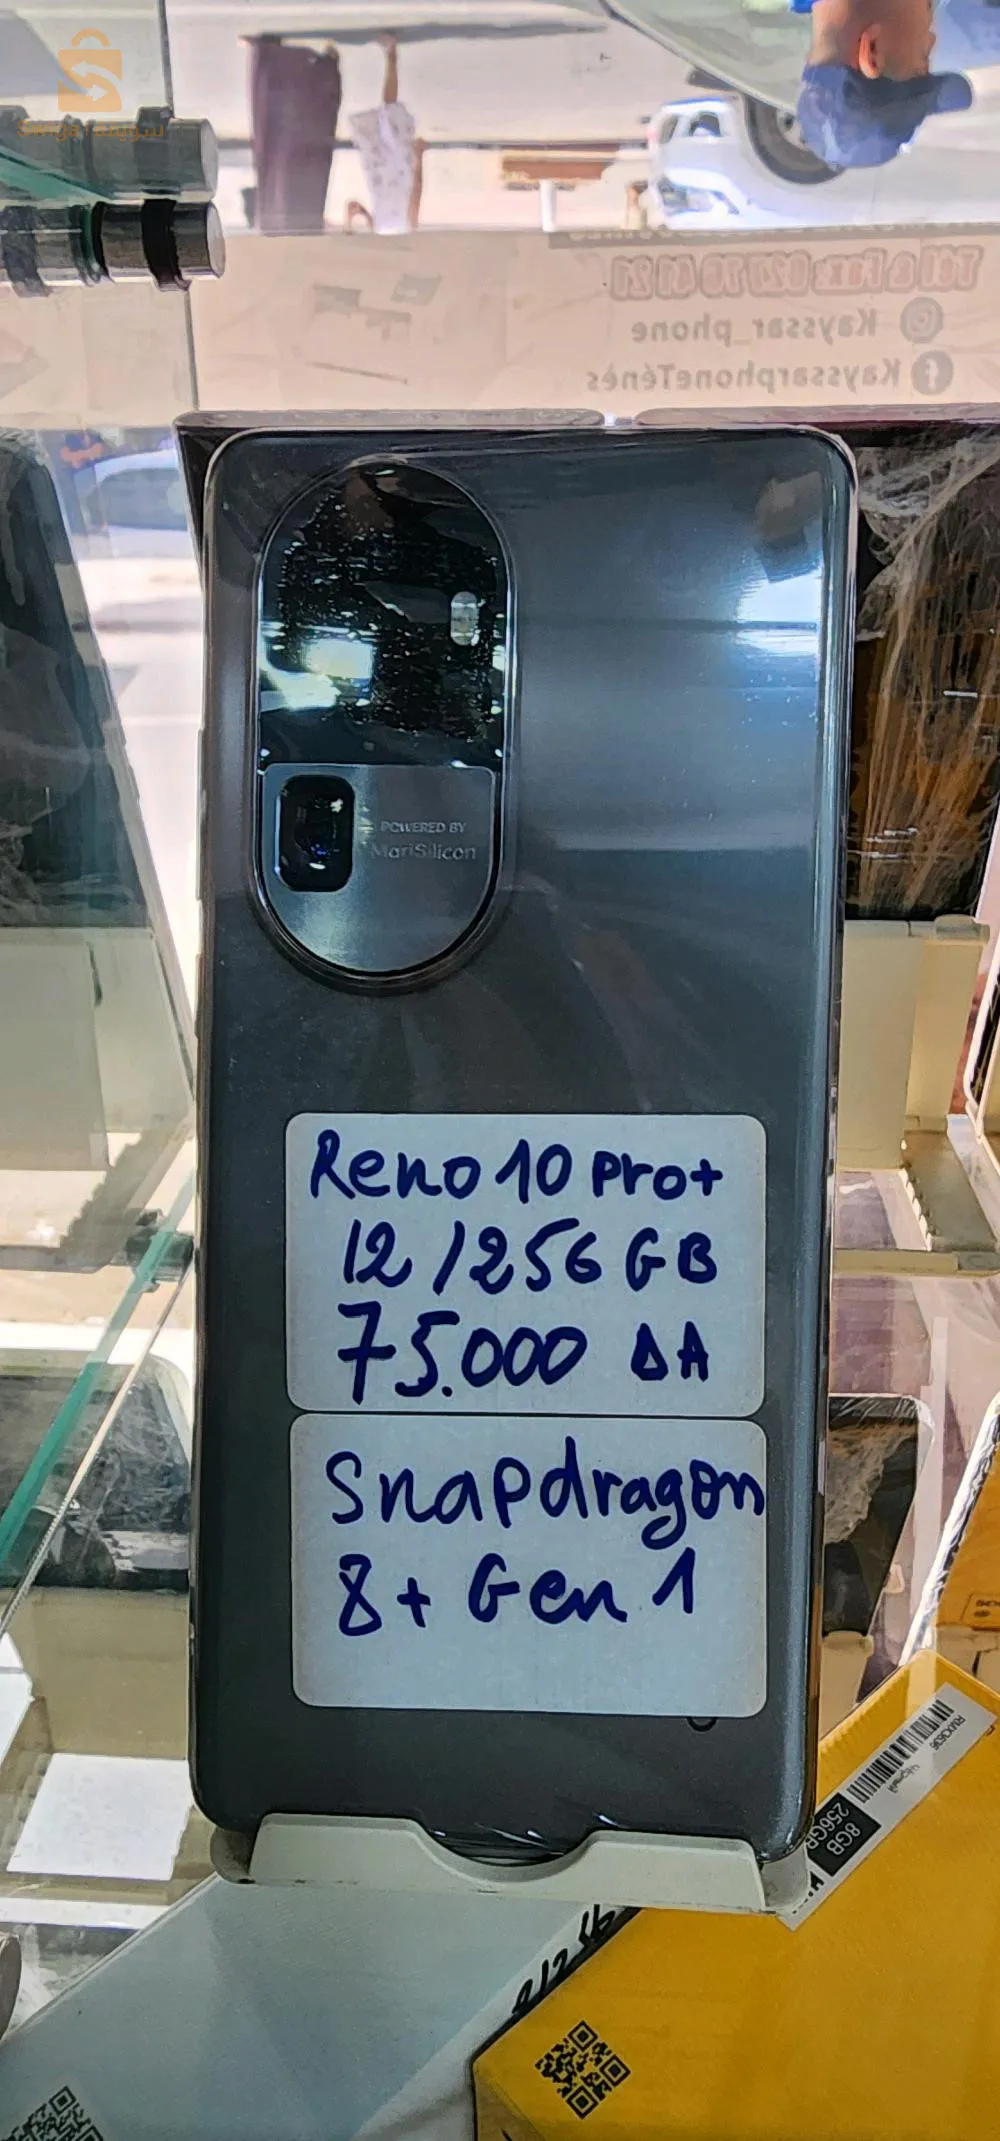 Swiya سوييا
Tel & Fax: 027 78 41 21
Kayssar_phone
KayssarphoneTénès
POWERED BY
MariSilicon
Reno 10 Pro+
12/256 GB
75.000 DA
Snapdragon
8+ Gen 1
RMX3636
8GB
256GB